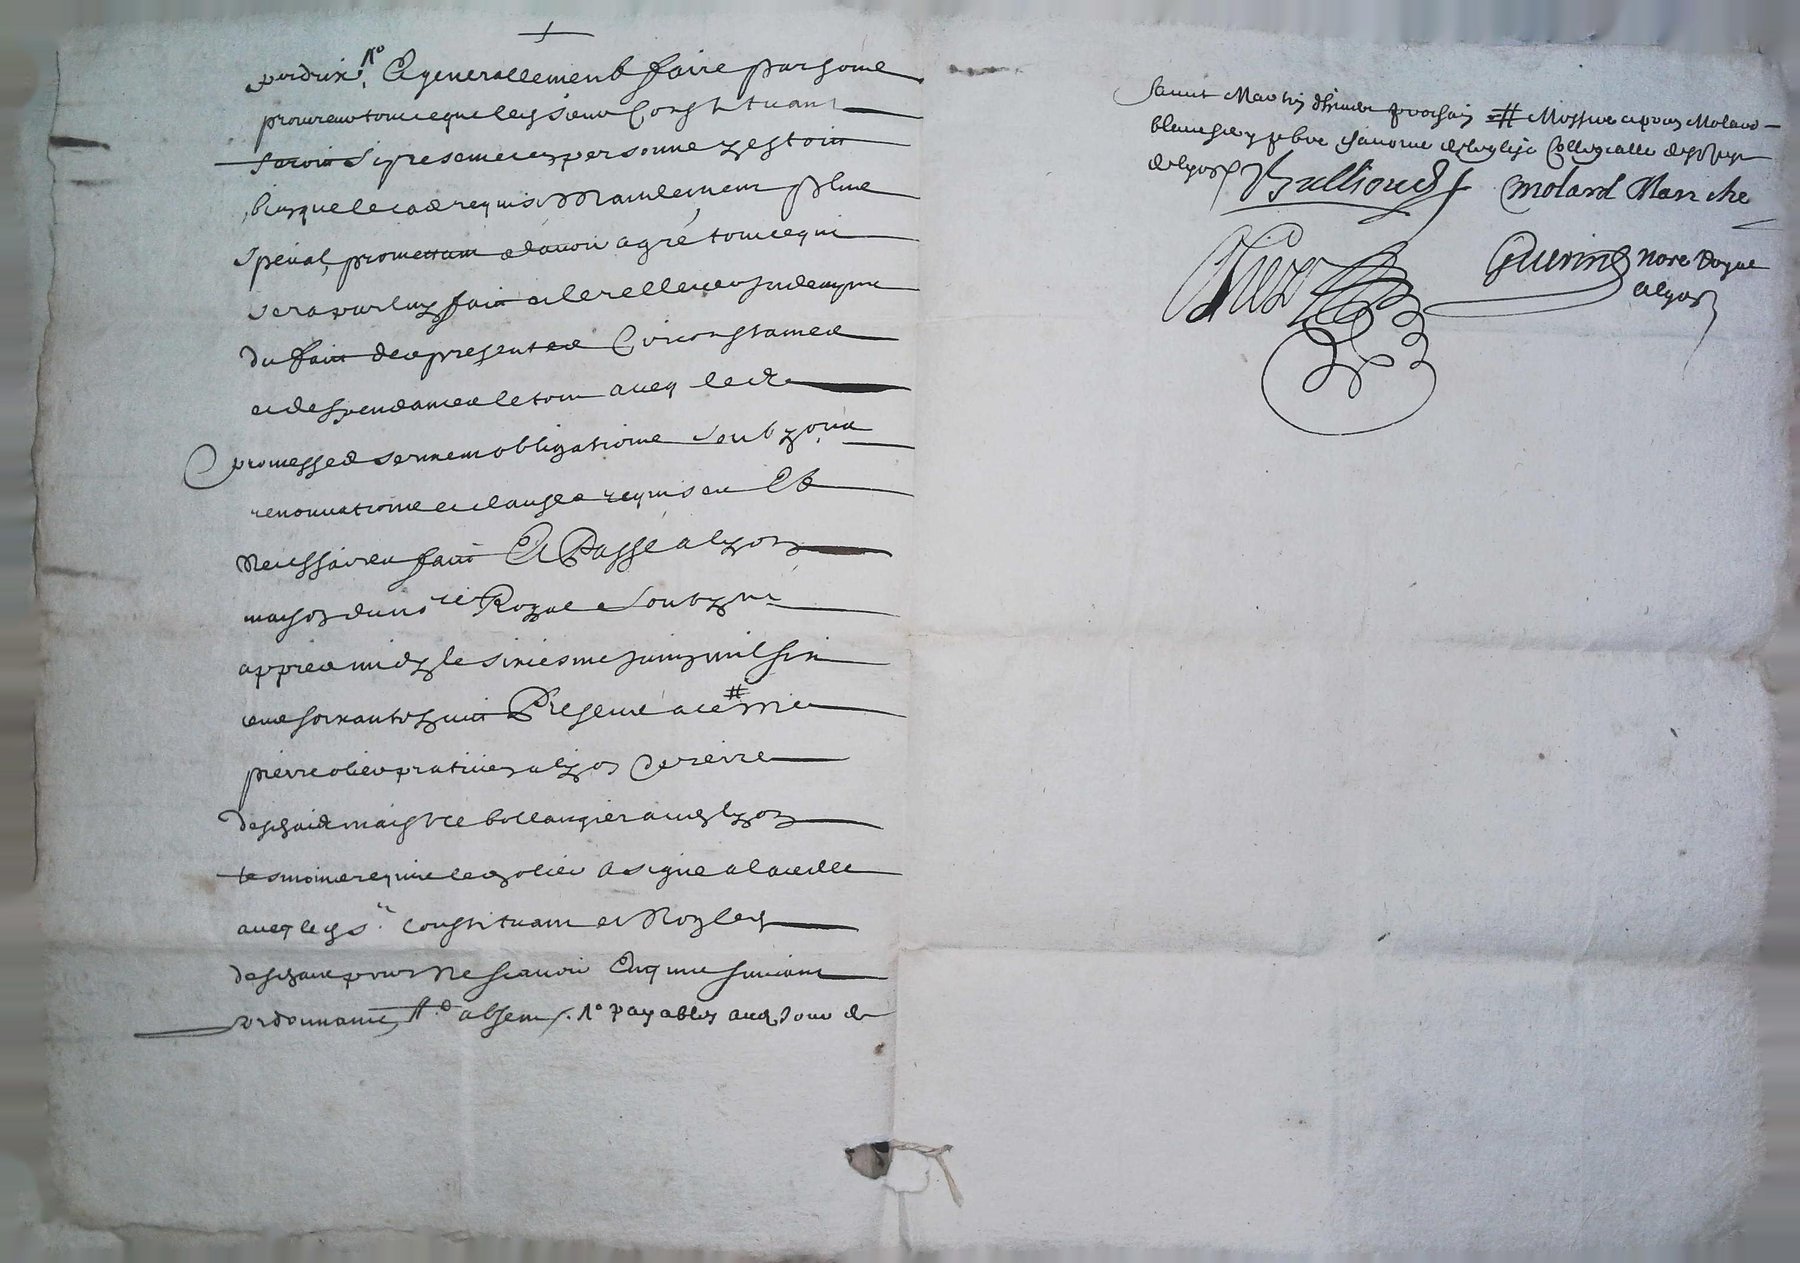 perdrix 1° Et generallement faire par some
procureur tout ce que led sieur Constituant
feroit si presence en personne y estoit
bien que le cas requis Mandement plus
spécial, promettant d'avoir agré tout ce qui
sera par luy fait et le rellever indempne
du fait des presentes Circonstances
et despendances le tout avec les
promesses serment obligations soubz
renonciations et clauses requises Et
Necessaires fait Et Passé a Lyon
maison du no.re Royal Soubzné
appres midy le sixiesme juing mil six
cens soixante huit Presens a ce # Me
pierre olier praticien a lyon Pierre
deschaie maistre bollangier aud lyon
tesmoins requis led olier a signé a la cedde
avec led sr Constituant et Non led
deschaie pour Ne scavoir Enquis suivant
l'ordonnance absent 1° payables aud Jour de
Saint Martin d'hiver prochain # Messire Molard
blanche pbre chanoine de l'eglise Collegialle
de lyon Bullioud Molard Blanche
Olier Guerin Nore Royal
a lyon